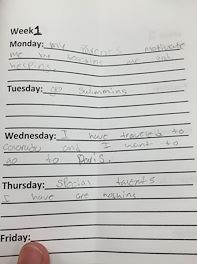 Week1
Monday: my parents motivate
me by teaching me and
helping.
Tuesday: go swimming
Wednesday: I have traveled to
Colorado and I want to
go to Paris.
Thursday: special talents
I have are nothing
Friday: